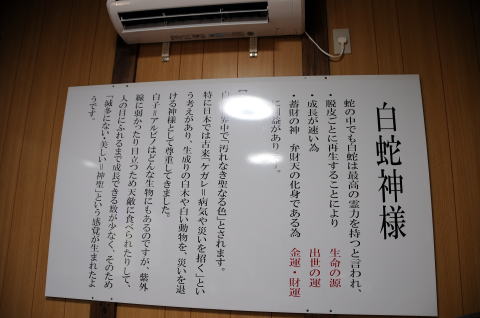 白蛇神様
蛇の中でも白蛇は最高の霊力を持つと言われ、
・脱皮ごとに再生することにより 生命の源
・成長が速い為 出世の運
・蓄財の神 弁財天の化身である為 金運・財運
に
があり
界中で「汚れなき聖なる色」とされます。
特に日本では古来「ケガレ＝病気や災いを招く」とい
う考えがあり、生成りの白木や白い動物を、災いを退
ける神様として尊重してきました。
白子＝アルビノはどんな生物にもあるのですが、紫外
線に弱かったり目立つため天敵に食べられたりして、
人の目にふれるまで成長できる数が少なく、そのため
「滅多にない・美しい＝神聖」という感覚が生まれたよ
うです。